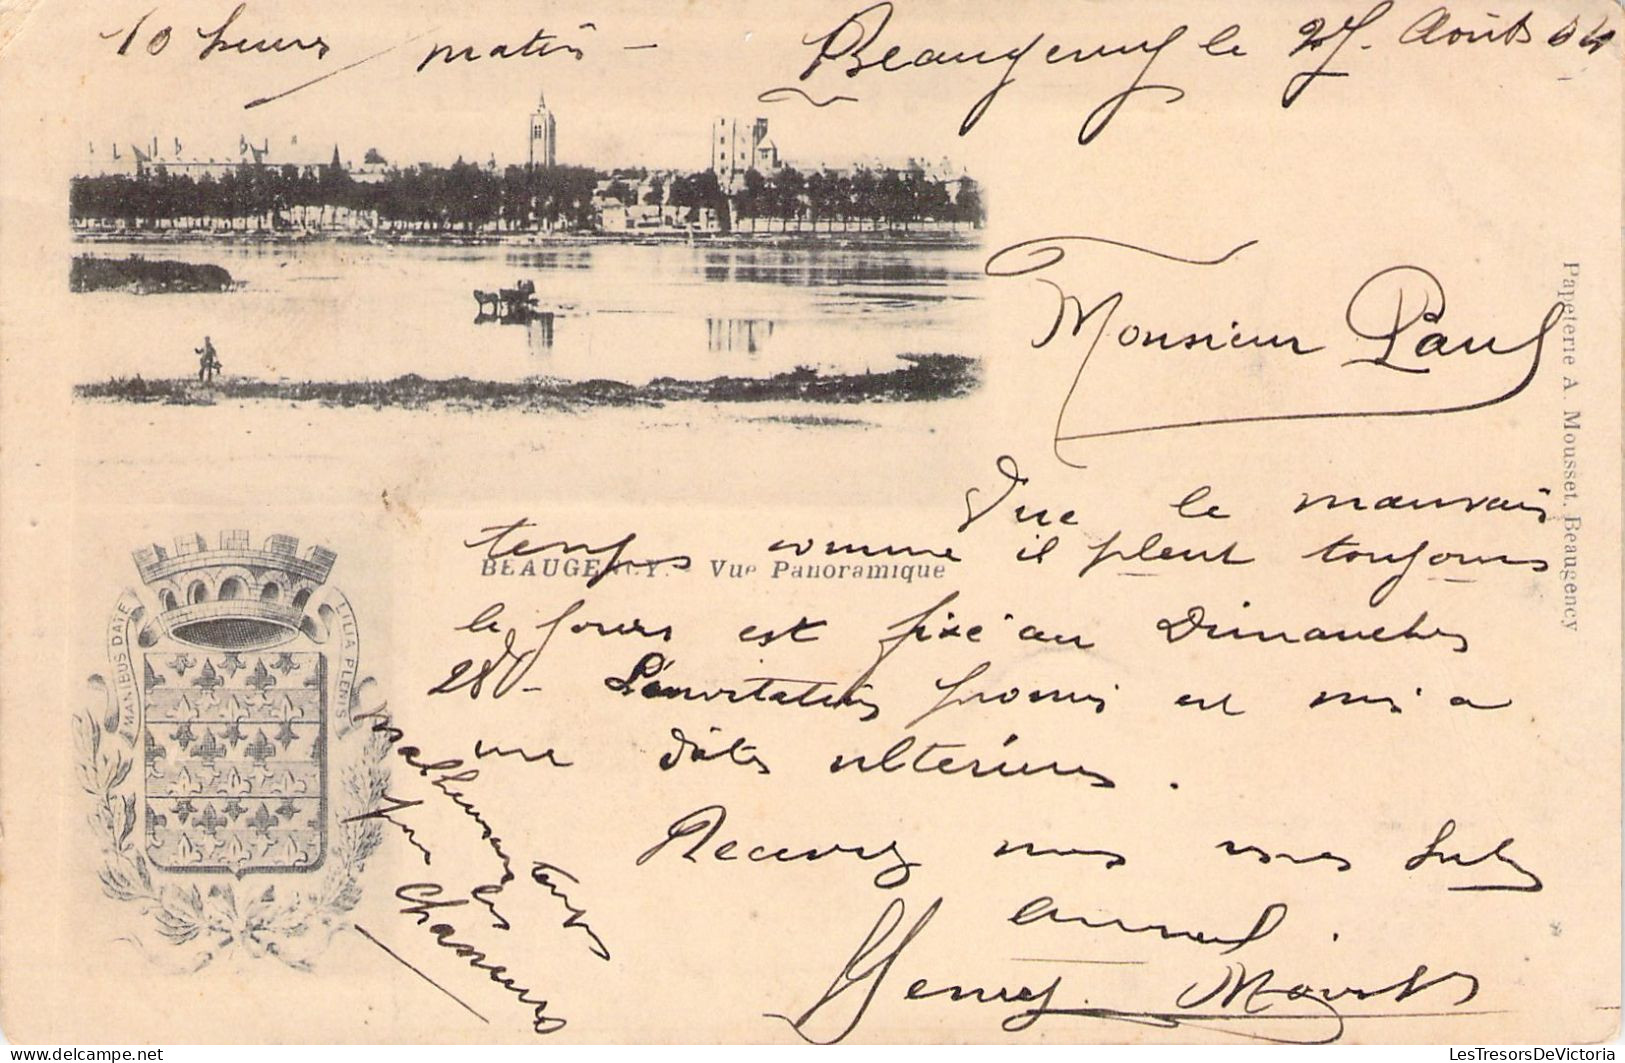 10 heures matin - Beaugency le 27. Août 04
Monsieur Paul
Vue le mauvais
temps comme il pleut toujours
le jours est fixé au Dimanches
28 - L'invitation promis est mis a
une dâtes ultérieures.
Recevez mes
amical.
Henry
malheureux temps
pour les
Chasseurs
BEAUGENCY. - Vue Panoramique
MANIBUS DATE LILIA PLENIS
Papeterie A. Mousset. Beaugency
LesTresorsDeVictoria sur Delcampe.net